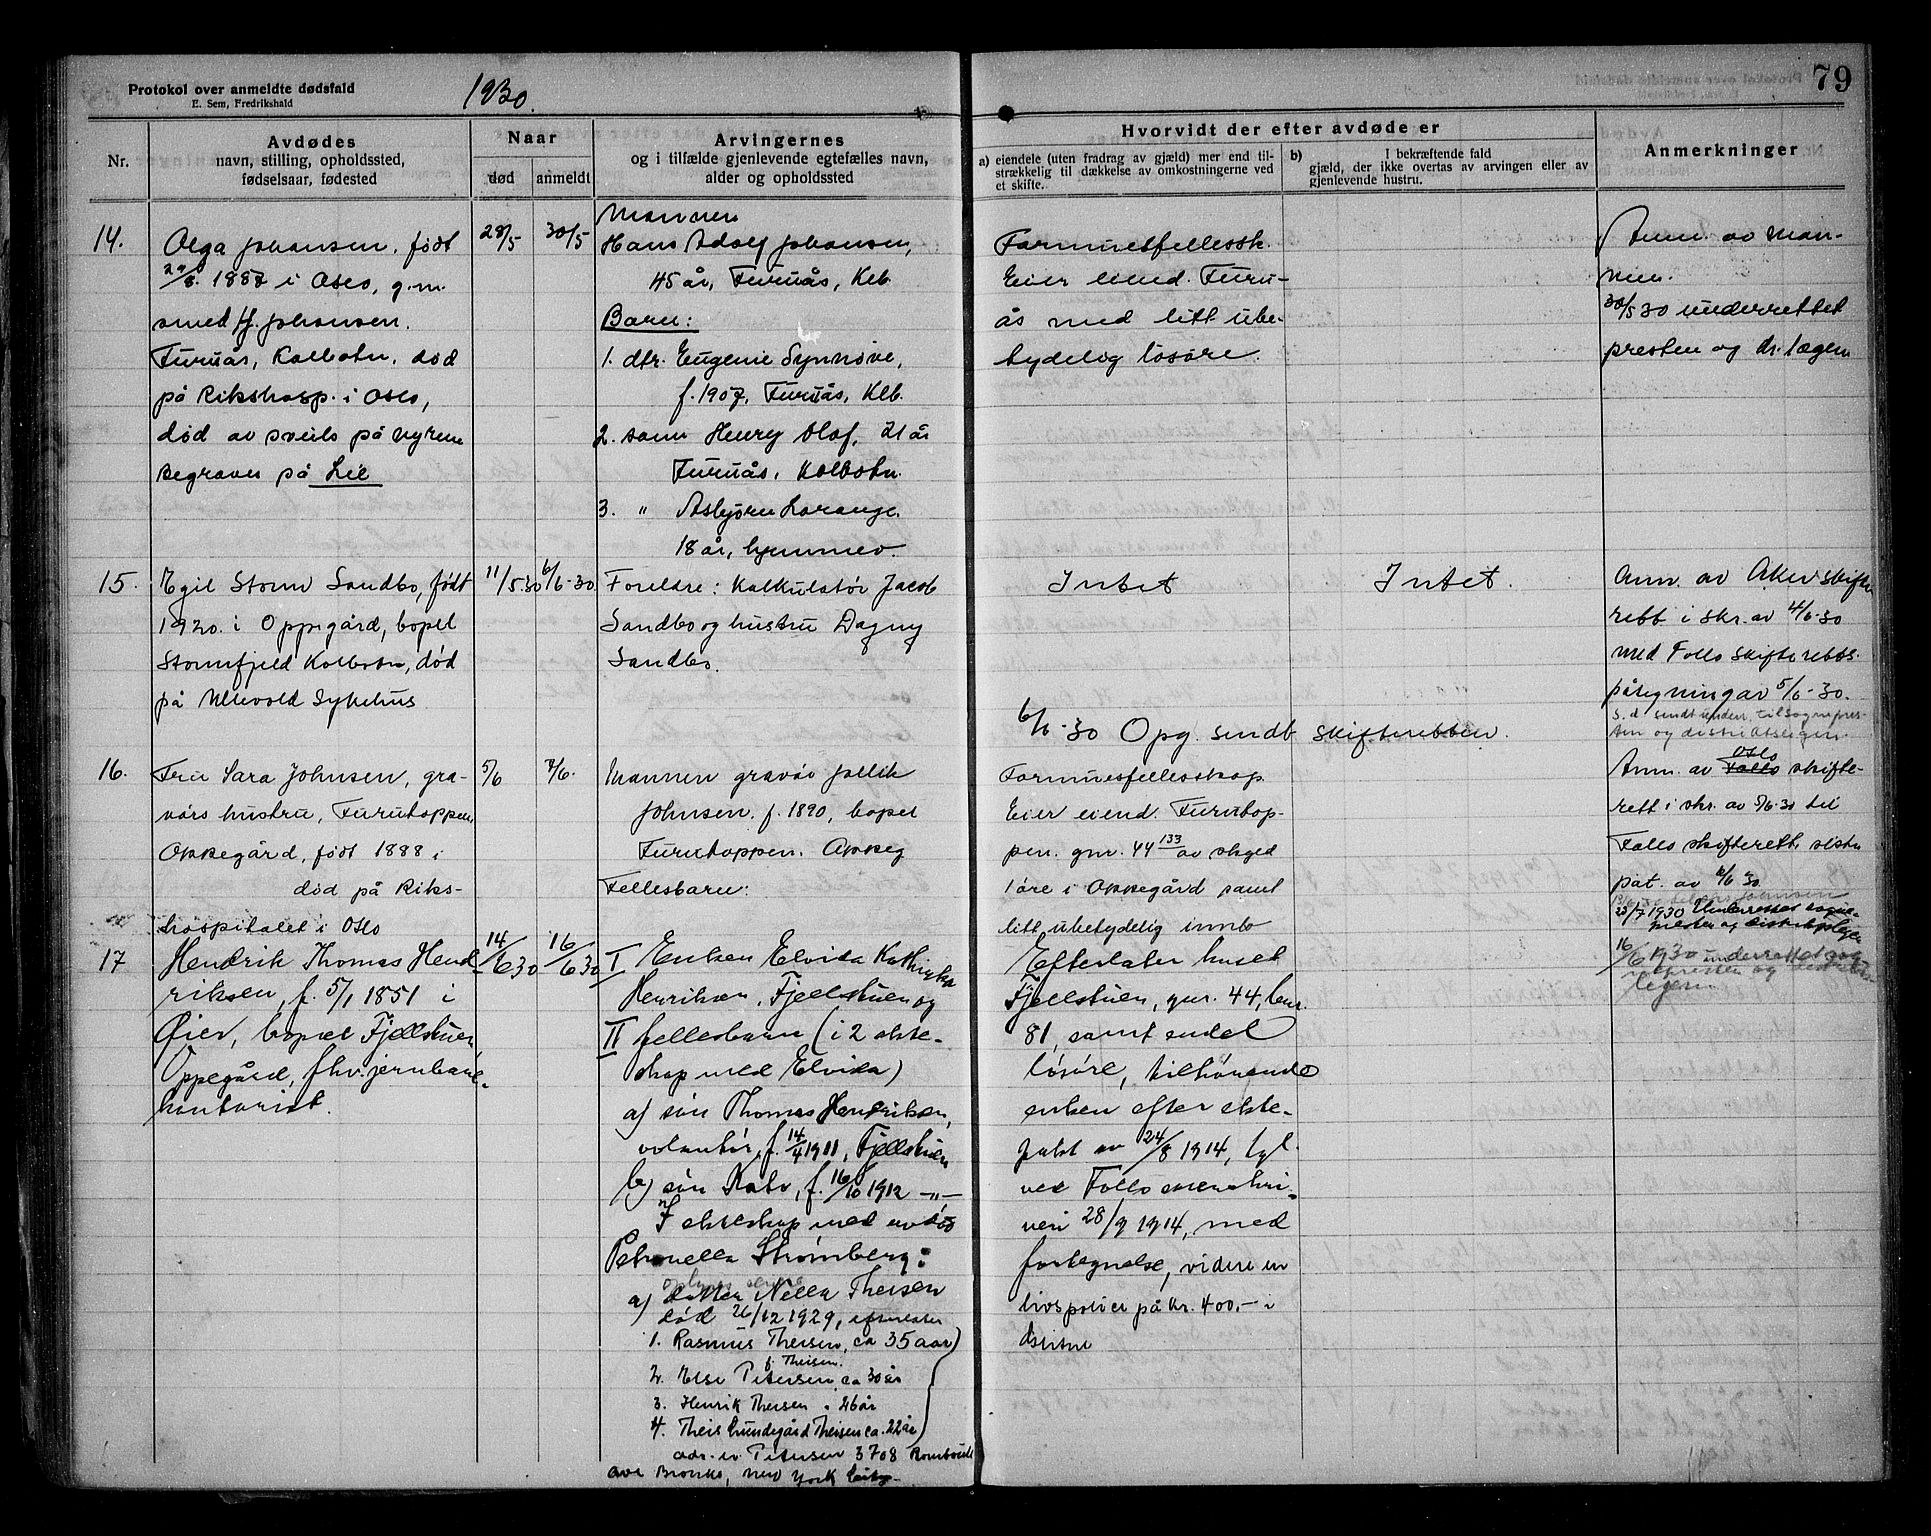 Protokol over anmeldte dødsfald
E. Sem, Fredrikshald
1930.
79
Nr.
Avdødes
navn, stilling, opholdssted,
fødselsaar, fødested
Naar
død
anmeldt
Arvingernes
og i tilfælde gjenlevende egtefælles navn,
alder og opholdssted
Hvorvidt der efter avdøde er
a) eiendele (uten fradrag av gjæld) mer end til-
strækkelig til dækkelse av omkostningerne ved
et skifte.
b) I bekræftende fald
gjæld, der ikke overtas av arvingen eller av
gjenlevende hustru.
Anmerkninger
14.
Olga Johansen, født
29/8. 1887 i Oslo, g.m.
smed H. Johansen.
Furuås, Kolbotn, død
på Rikshosp. i Oslo,
død av sveils på nyrene
Begraves på Lie
28/5
30/5
Mannen
Hans Adolf Johansen,
45 år, Furuås, Klb.
Barn:
1. dtr. Eugenie Synnøve,
f. 1907, Furuås, Klb.
2. sønn Henry Olaf, 21 år
Furuås, Kolbotn.
3. " Asbjørn Lorange.
18 år, hjemmev.
Formuesfellessk.
Eier eiend. Furu-
ås med litt ube-
tydelig løsøre.
Anm. av man-
nen.
30/5 30 underrettet
presten og dr. lægen
15.
Egil Storm Sandbo, født
1920. i Oppegård, bopel
Stormfjeld Kolbotn, død
på Ullevold Sykehus
11/5.30
6/6-30
Foreldre: Kalkulatør Jacob
Sandbo og hustru Dagny
Sandbo.
Intet
Intet.
6/6-30 Opg. sendt skifteretten.
Anm. av Aker skifte
rett i skr. av 4/6-30
med Follo skifteretts.
påtegning av 5/6-30.
s.d sendt underr. til sognepres-
ten og distriktslegen.
16.
Fru Sara Johnsen, gra-
vørs hustru, Furutoppen
Oppegård, født 1888 i
død på Riks-
hospitalet i Oslo
5/6
7/6.
Mannen gravør
Johnsen. f. 1890, bopel
Furutoppen. Oppeg
Fellesbarn:
Formuesfellesskap
Eier eiend. Furutop-
pen. gnr. 44 133 av skyld
1 øre i Oppegård samt
litt ubetydelig innbo
Anm. av Oslo Follo skifte-
rett i skr. av 5/6-30 til
Follo skifterett, sistn
pat. av 6/6 30.
23/7 1930 Underrettet sogne-
presten og distriktslegen
17
Hendrik Thomas Hend-
riksen, f. 5/1 1851 i
Øier, bopæl Fjellstuen
Oppegård, fhv. jernbane-
kontorist.
14/6 30
16/6 30
I Enken Elvida Kathinka
Henriksen, Fjellstuen og
II fellesbarn (i 2 ekte-
skap med Elvida)
a) søn Thomas Hendriksen,
volontør, f. 14/4 1911, Fjellstuen
b) søn Roto, f. 16/10 1912 -"-
I ekteskap med avdøde
Petronella Strømberg:
a) datter Nella Theisen
død 26/12 1929, efterlater
1. Rasmus Theisen, ca 35 aar
f. Theisen.
2. Else Petersen, ca 30 år
3. Henrik Theisen " 26 år
4. Theis Lundegård Theisen ca. 22 år
adr. er Petersen 3708
ave Bronks, New York City-
Efterlater huset
Fjellstuen, gnr. 44, bnr.
81, samt endel
løsøre, tilhørende
enken efter ekte-
pakt av 24/8 1914, tgl.
ved Follo sorenskri-
veri 28/9 1914, med
fortegnelse, videre en
livspolice på kr. 400,- i
16/6 1930 underrettet sogn
nepresten og distrikts
legen